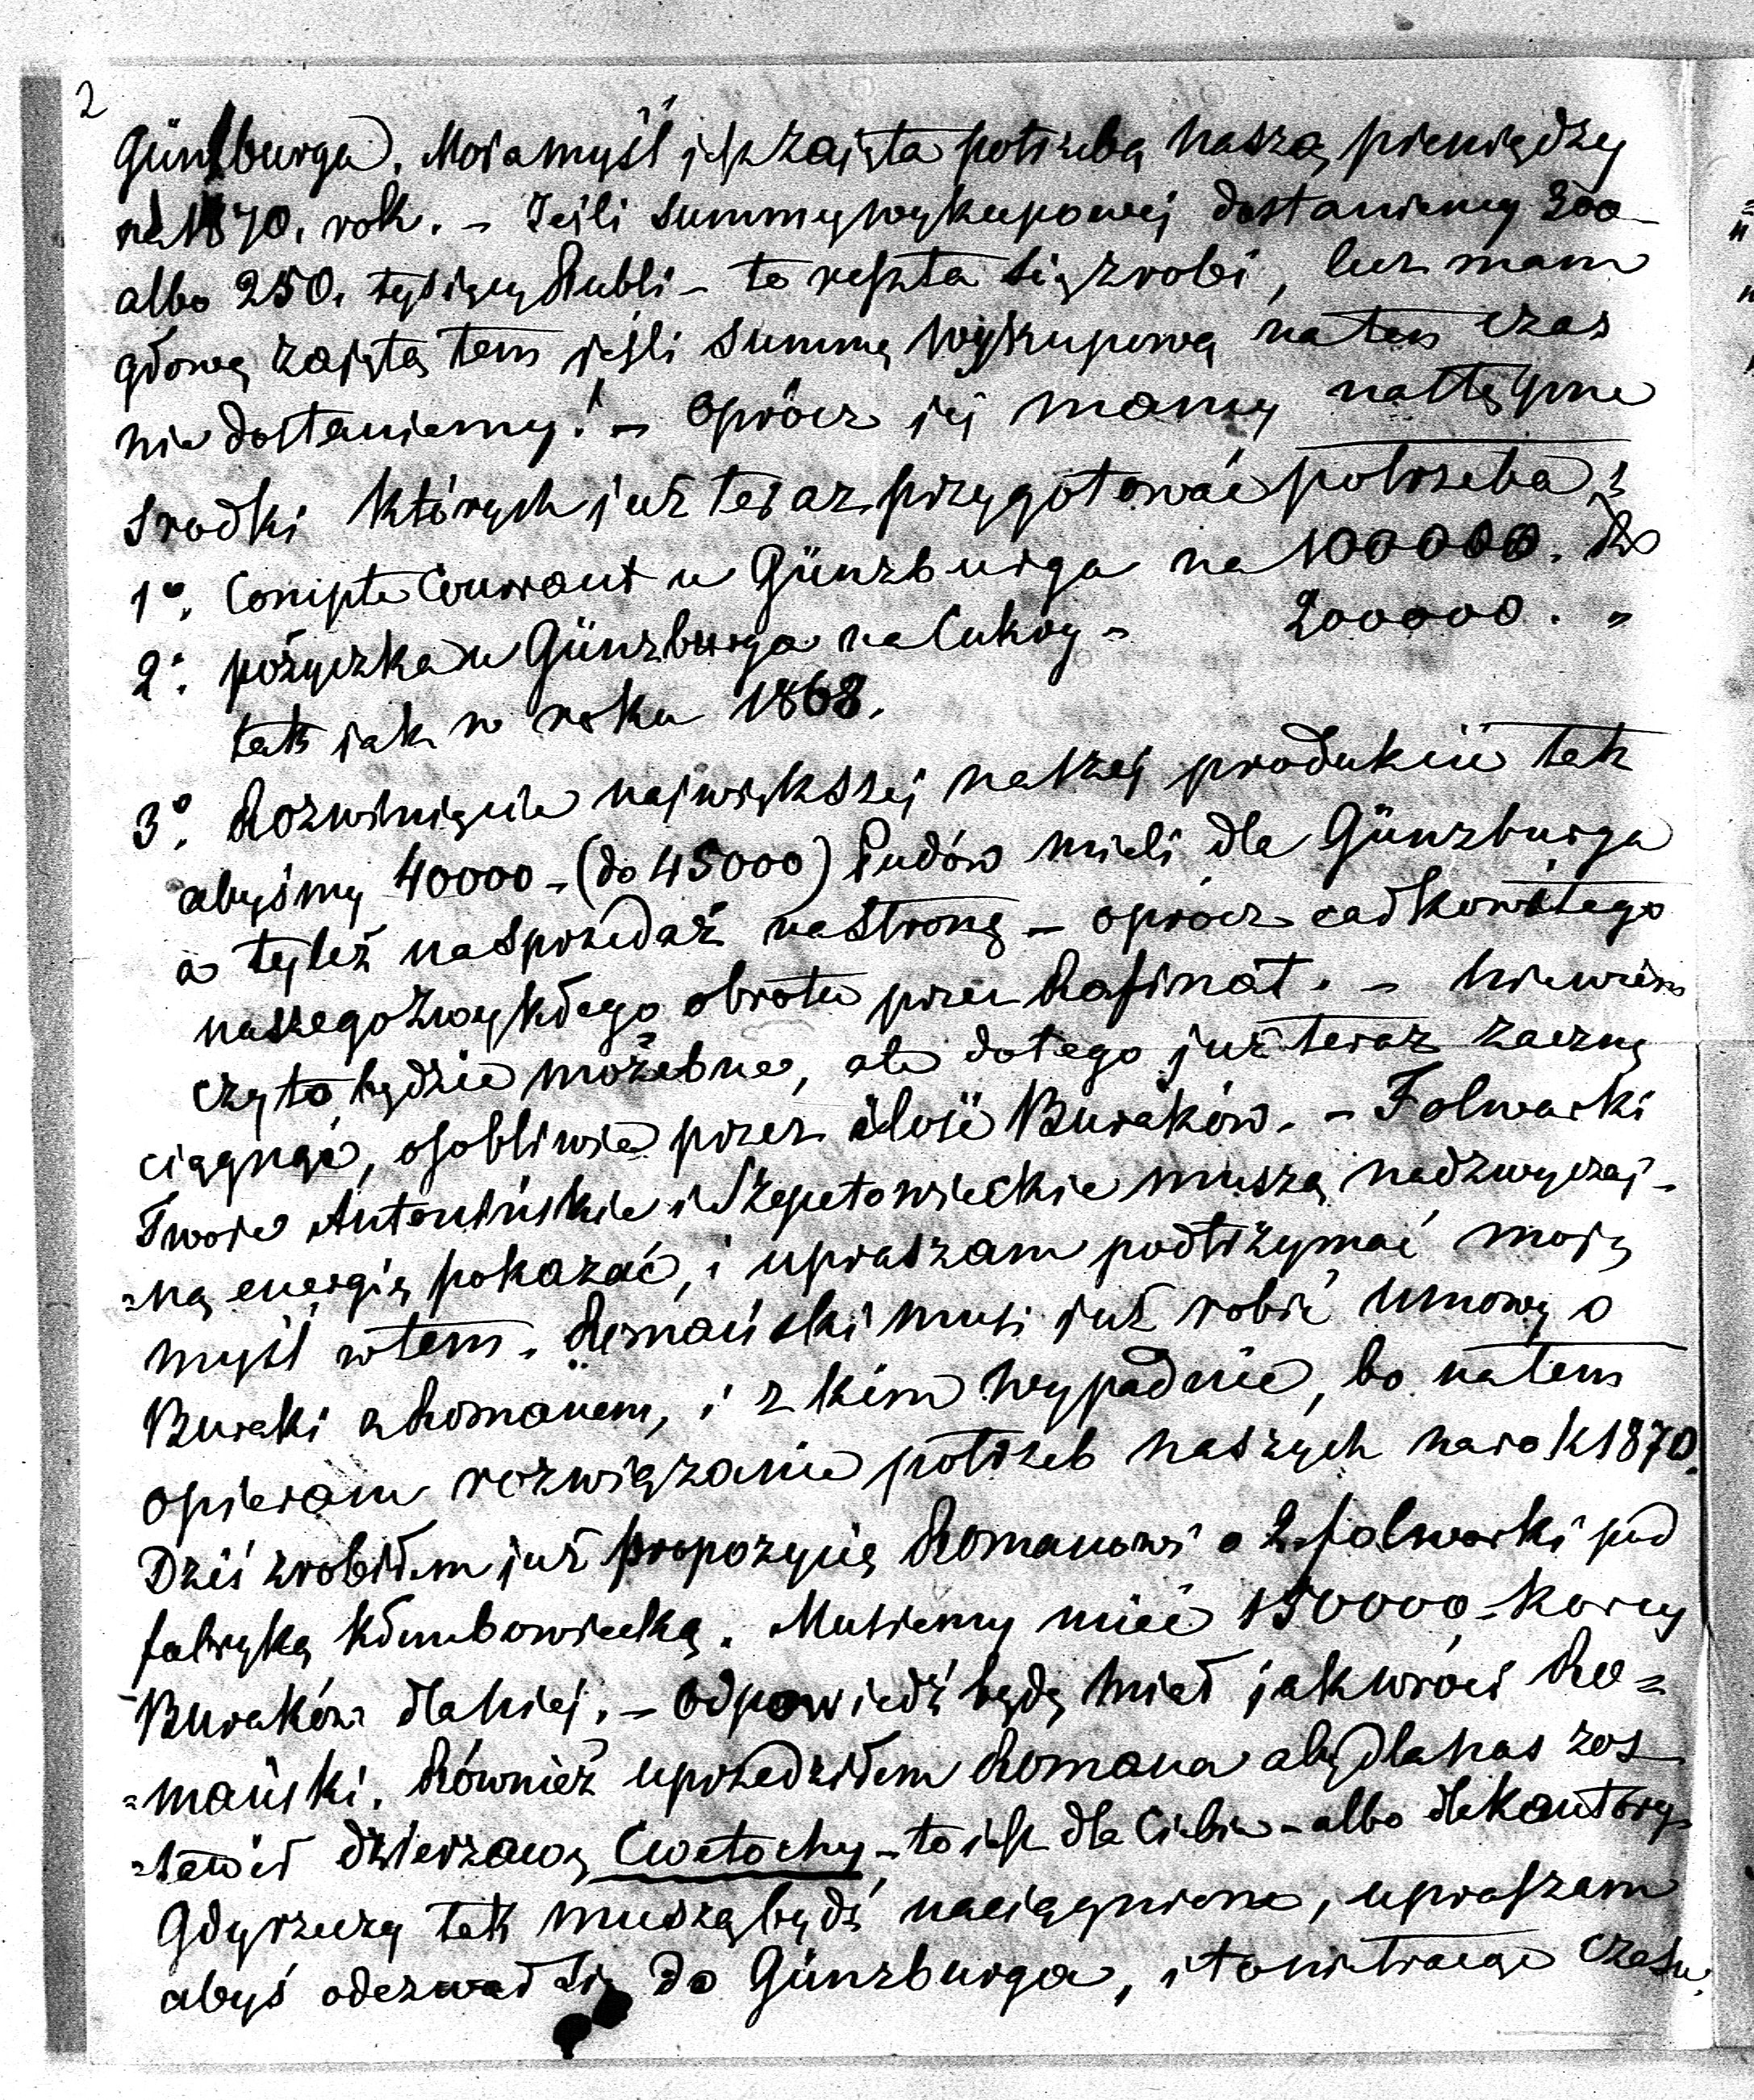 2
Günzburga. Moia myśl jest zajęta potrzebą naszą pieniędzy
na 1870. rok. – Jeśli summy wykupowej dostaniemy 300 –
albo 250. tysięcy Rubli – to reszta się zrobi, lecz mam
głowę zajętą tem jeśli summę wykupową na ten czas
nie dostaniemy! – Oprócz jej mamy następne
srodki których już teraz przygotować potrzeba:
1º. Compte Courrant u Günzburga na 100000. Rs
2º. pożyczka u Günzburga na Cukry – 200000. "
tak jak w roku 1868.
3º. Rozwinięcie największej naszej produkcii tak
abyśmy 40000 – (do 45000) Pudów mieli dla Günzburga
a tyleż na sprzedaż na stronę – oprócz całkowitego
naszego zwykłego obrotu przez Rafinat. – Nie wiem
czy to będzie możebne, ale do tego już teraz zacznę
ciągnąć, osobliwie przez ilość Buraków. – Folwarki
Twoie Antonińskie i Szepetowieckie muszą nadzwyczaj-
=ną energię pokazać, i upraszam podtrzymać moją
myśl w tem. Romański musi już robić umowę o
Buraki z Romanem, i z kim wypadnie, bo na tem
opieram rozwiązanie potrzeb naszych na rok 1870.
Dziś zrobiłem już propozycię Romanowi o 2. folwarki pod
fabryką Kłembowiecką. Musiemy mieć 150000 – korcy
Buraków dla niej. – Odpowiedź będę miał jak wróci Ro=
=mański. Również uprzedziłem Romana aby dla nas zos
=tawił dzierzawę Cwetochy – to jest dla Ciebie – albo dla Kantory.
Gdy rzeczy tak muszą bydź naciągnione, upraszam
abyś odezwał się do Günzburga, i to nie tracąc czasu.